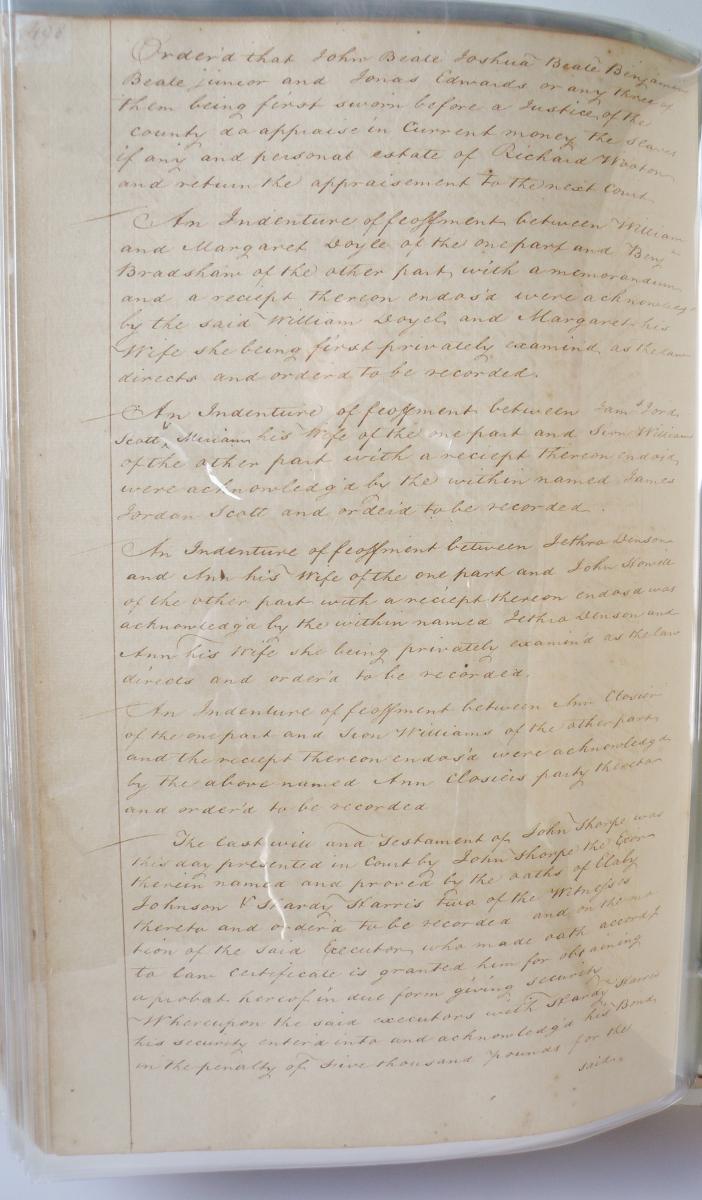 Order'd that John Beale Joshua Beale Benjamin
Beale junior and Jonas Edwards or any three of
them being first sworn before a Justice of the
county do appraise in Current money the slaves
if any and personal estate of Richard Wooton
and return the appraisement to the next Court
An Indenture of feoffment between William
and Margaret Doyle of the one part and Benj
Bradshaw of the other part with a memorandum
and a reciept thereon endors'd were acknowledg'd
by the said William Doyel and Margaret his
Wife she being first privately examind as the law
directs and orderd to be recorded.
An Indenture of feoffment between Jams Jord
Scott Miriam his Wife of the one part and Sion Williams
of the other part with a reciept thereon endoisd
were acknowledg'd by the within named James
Jordan Scott and ordeid to be recorded.
An Indenture of feoffment between Jethro Denson
and Ann his Wife of the one part and John Howell
of the other part with a reciept thereon endosd was
acknowledg'd by the within named Jethro Denson and
Ann his Wife she being privately examin'd as the law
directs and order'd to be recorded.
An Indenture of feoffment between Ann Closier
of the one part and Sion Williams of the other part
and the reciept thereon endos'd were acknowledg'd
by the above named Ann Closiers party thereto
and order'd to be recorded
The last will and Testament of John Thorpe was
this day presented in Court by John Thorpe the Exor
therein named and proved by the oaths of
Johnson & Hardy Harris two of the Witnesses
thereto and order'd to be recorded and on the mo
tion of the said Executor who made oath accordg
to law certificate is granted him for obtaining
a probat hereof in due form giving security
Whereupon the said executors with Hardy Harris
his security enter'd into and acknowledg'd his Bond
in the penalty of five thousand pounds for the
said